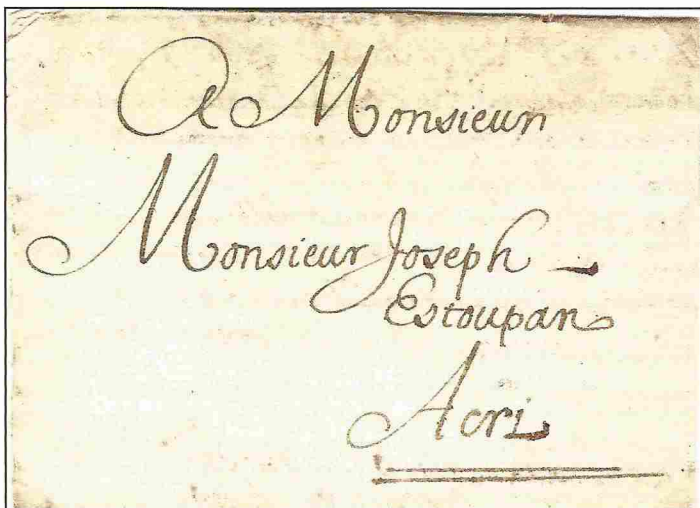 A Monsieur
Monsieur Joseph
Estoupan
Acri